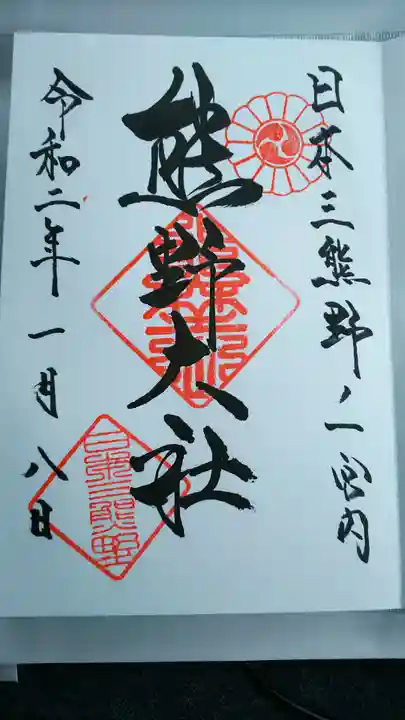 日本三熊野ノ一宮内
熊野大社
令和二年一月八日